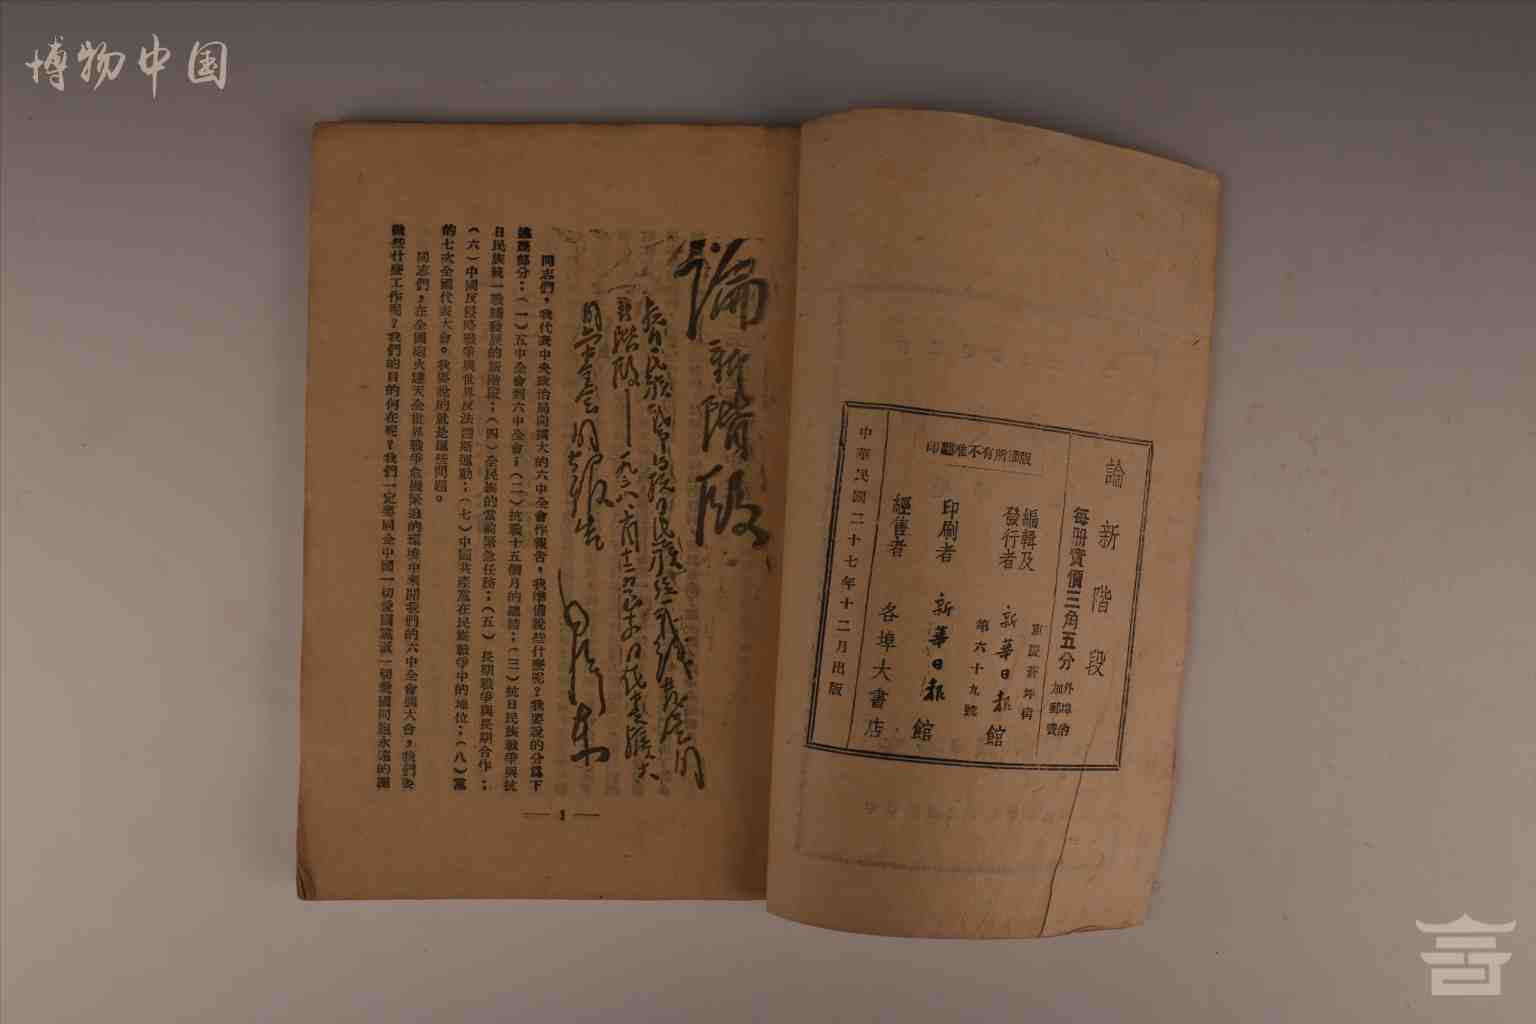 博物中国
論新階段
每冊實價三角五分
外埠酌加郵費
編輯及發行者
新華日報館
第六十九號
印刷者
新華日報館
經售者
各埠大書店
中華民國二十七年十二月出版
論新階段
抗日民族戰爭與抗日民族統一戰線發展的
新階段——一九三八年十月十二日至十四日在中共擴大
的六中全會的報告
毛澤東
同志們,我代表中央政治局向擴大的六中全會作報告,我準備說些什麼呢?我要說的分爲下
述幾部分:(一)五中全會到六中全會;(二)抗戰十五個月的總結;(三)抗日民族戰爭與抗
日民族統一戰線發展的新階段;(四)全民族的當前緊急任務;(五)長期戰爭與長期合作;
(六)中國反侵略戰爭與世界反法西斯運動;(七)中國共產黨在民族戰爭中的地位;(八)黨
的七次全國代表大會。我要說的就是這些問題。
同志們,在全國炮火連天全世界戰爭危機緊迫的環境中來開我們的六中全會擴大會,我們要
做些什麼工作呢?我們的目的何在呢?我們一定要同全中國一切愛國黨派一切愛國同胞永遠的團
— 1 —